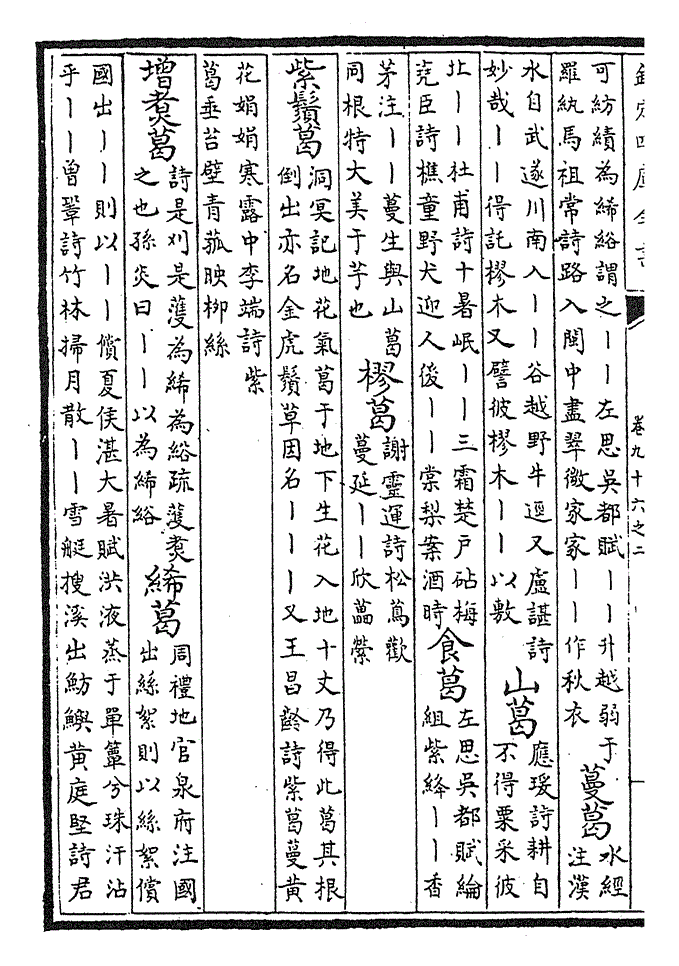 欽定四庫全書
卷九十六之二
可紡績為絺綌謂之丨丨左思吳都賦丨丨升越弱于
羅紈馬祖常詩路入閩中盡翠微家家丨丨作秋衣
蔓葛
水經
注漢
水自武遂川南入丨丨谷越野牛逕又盧諶詩
妙哉丨丨得託樛木又譬彼樛木丨丨以敷
山葛
應瑗詩耕自
不得粟采彼
北丨丨杜甫詩十暑岷丨丨三霜楚戶砧梅
堯臣詩樵童野犬迎人後丨丨棠梨案酒時
食葛
左思吳都賦綸
組紫絳丨丨香
茅注丨丨蔓生與山葛
同根特大美于芋也
樛葛
謝靈運詩松蔦歡
蔓延丨丨欣藟縈
紫鬚葛
洞冥記地花氣葛于地下生花入地十丈乃得此葛其根
倒出亦名金虎鬚草因名丨丨丨又王昌齡詩紫葛蔓黄
花娟娟寒露中李端詩紫
葛垂苔壁青菰映柳絲
增煑葛
詩是刈是濩為絺為綌疏濩煑
之也孫炎曰丨丨以為絺綌
絺葛
周禮地官泉府注國
出絲絮則以絲絮償
國出丨丨則以丨丨償夏侯湛大暑賦洪液蒸于單簟兮珠汗沾
乎丨丨曾鞏詩竹林掃月散丨丨雪艇搜溪出魴鱮黄庭堅詩君